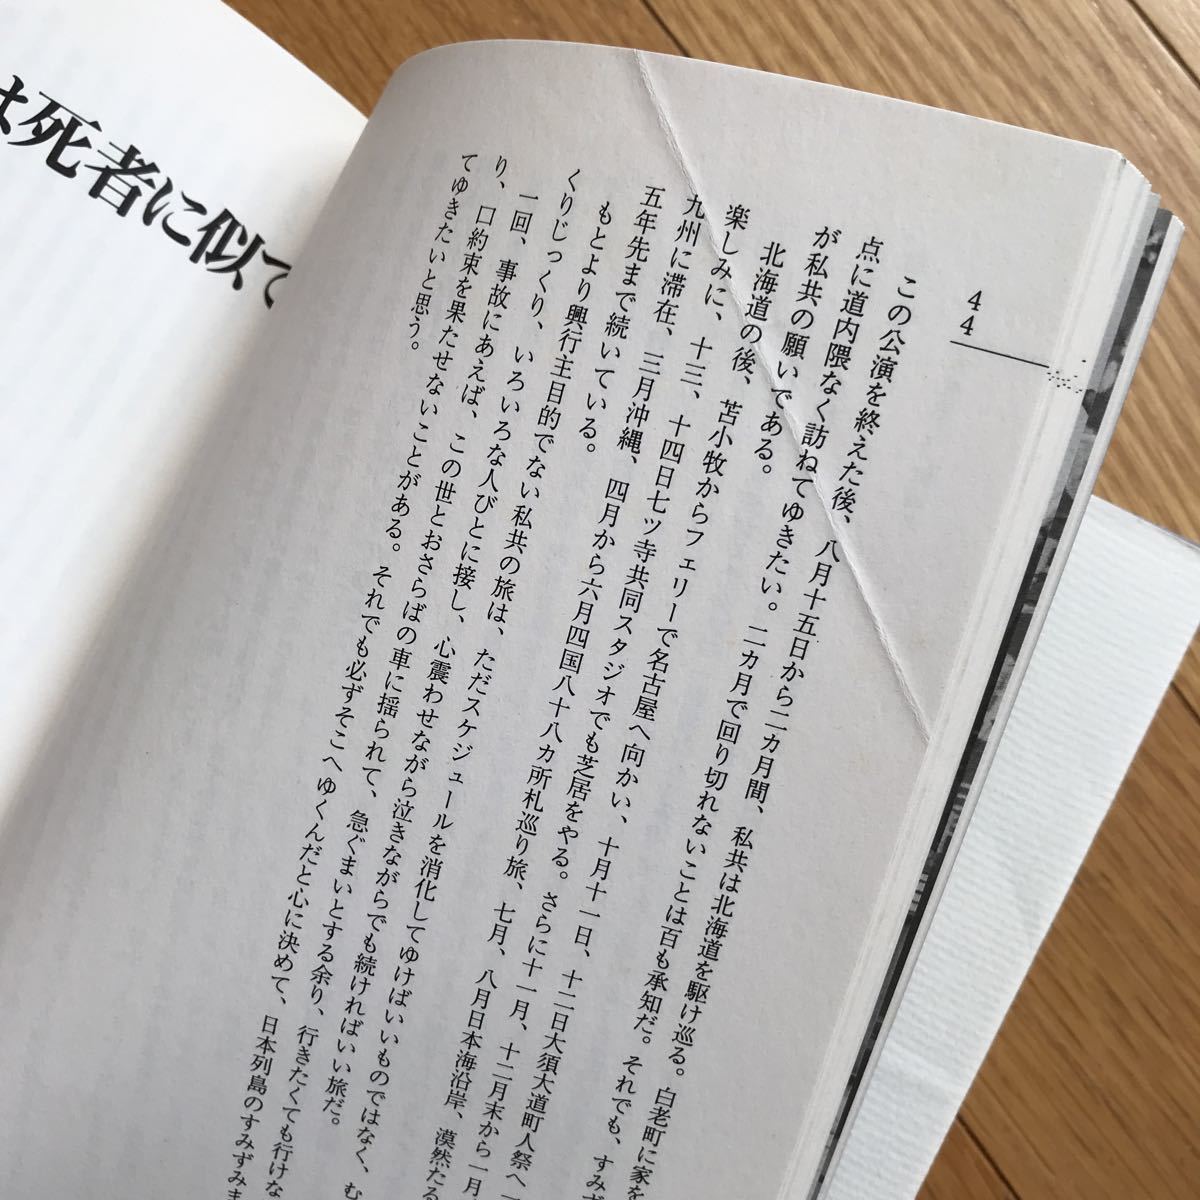 44
この公演を終えた後、八月十五日から二カ月間、私共は北海道を駆け巡る。白老町に家を
点に道内隈なく訪ねてゆきたい。二カ月で回り切れないことは百も承知だ。それでも、すみず
が私共の願いである。
北海道の後、苫小牧からフェリーで名古屋へ向かい、十月十一日、十二日大須大道町人祭へ
楽しみに、十三、十四日七ツ寺共同スタジオでも芝居をやる。さらに十一月、十二月末から一月
九州に滞在、三月沖縄、四月から六月四国八十八カ所札巡り旅、七月、八月日本海沿岸、漠然たる
五年先まで続いている。
もとより興行主目的でない私共の旅は、ただスケジュールを消化してゆけばいいものではなく、む
くりじっくり、いろいろな人びとに接し、心震わせながら泣きながらでも続ければいい旅だ。
一回、事故にあえば、この世とおさらばの車に揺られて、急ぐまいとする余り、行きたくても行けな
り、口約束を果たせないことがある。それでも必ずそこへゆくんだと心に決めて、日本列島のすみずみま
てゆきたいと思う。
は死者に似て